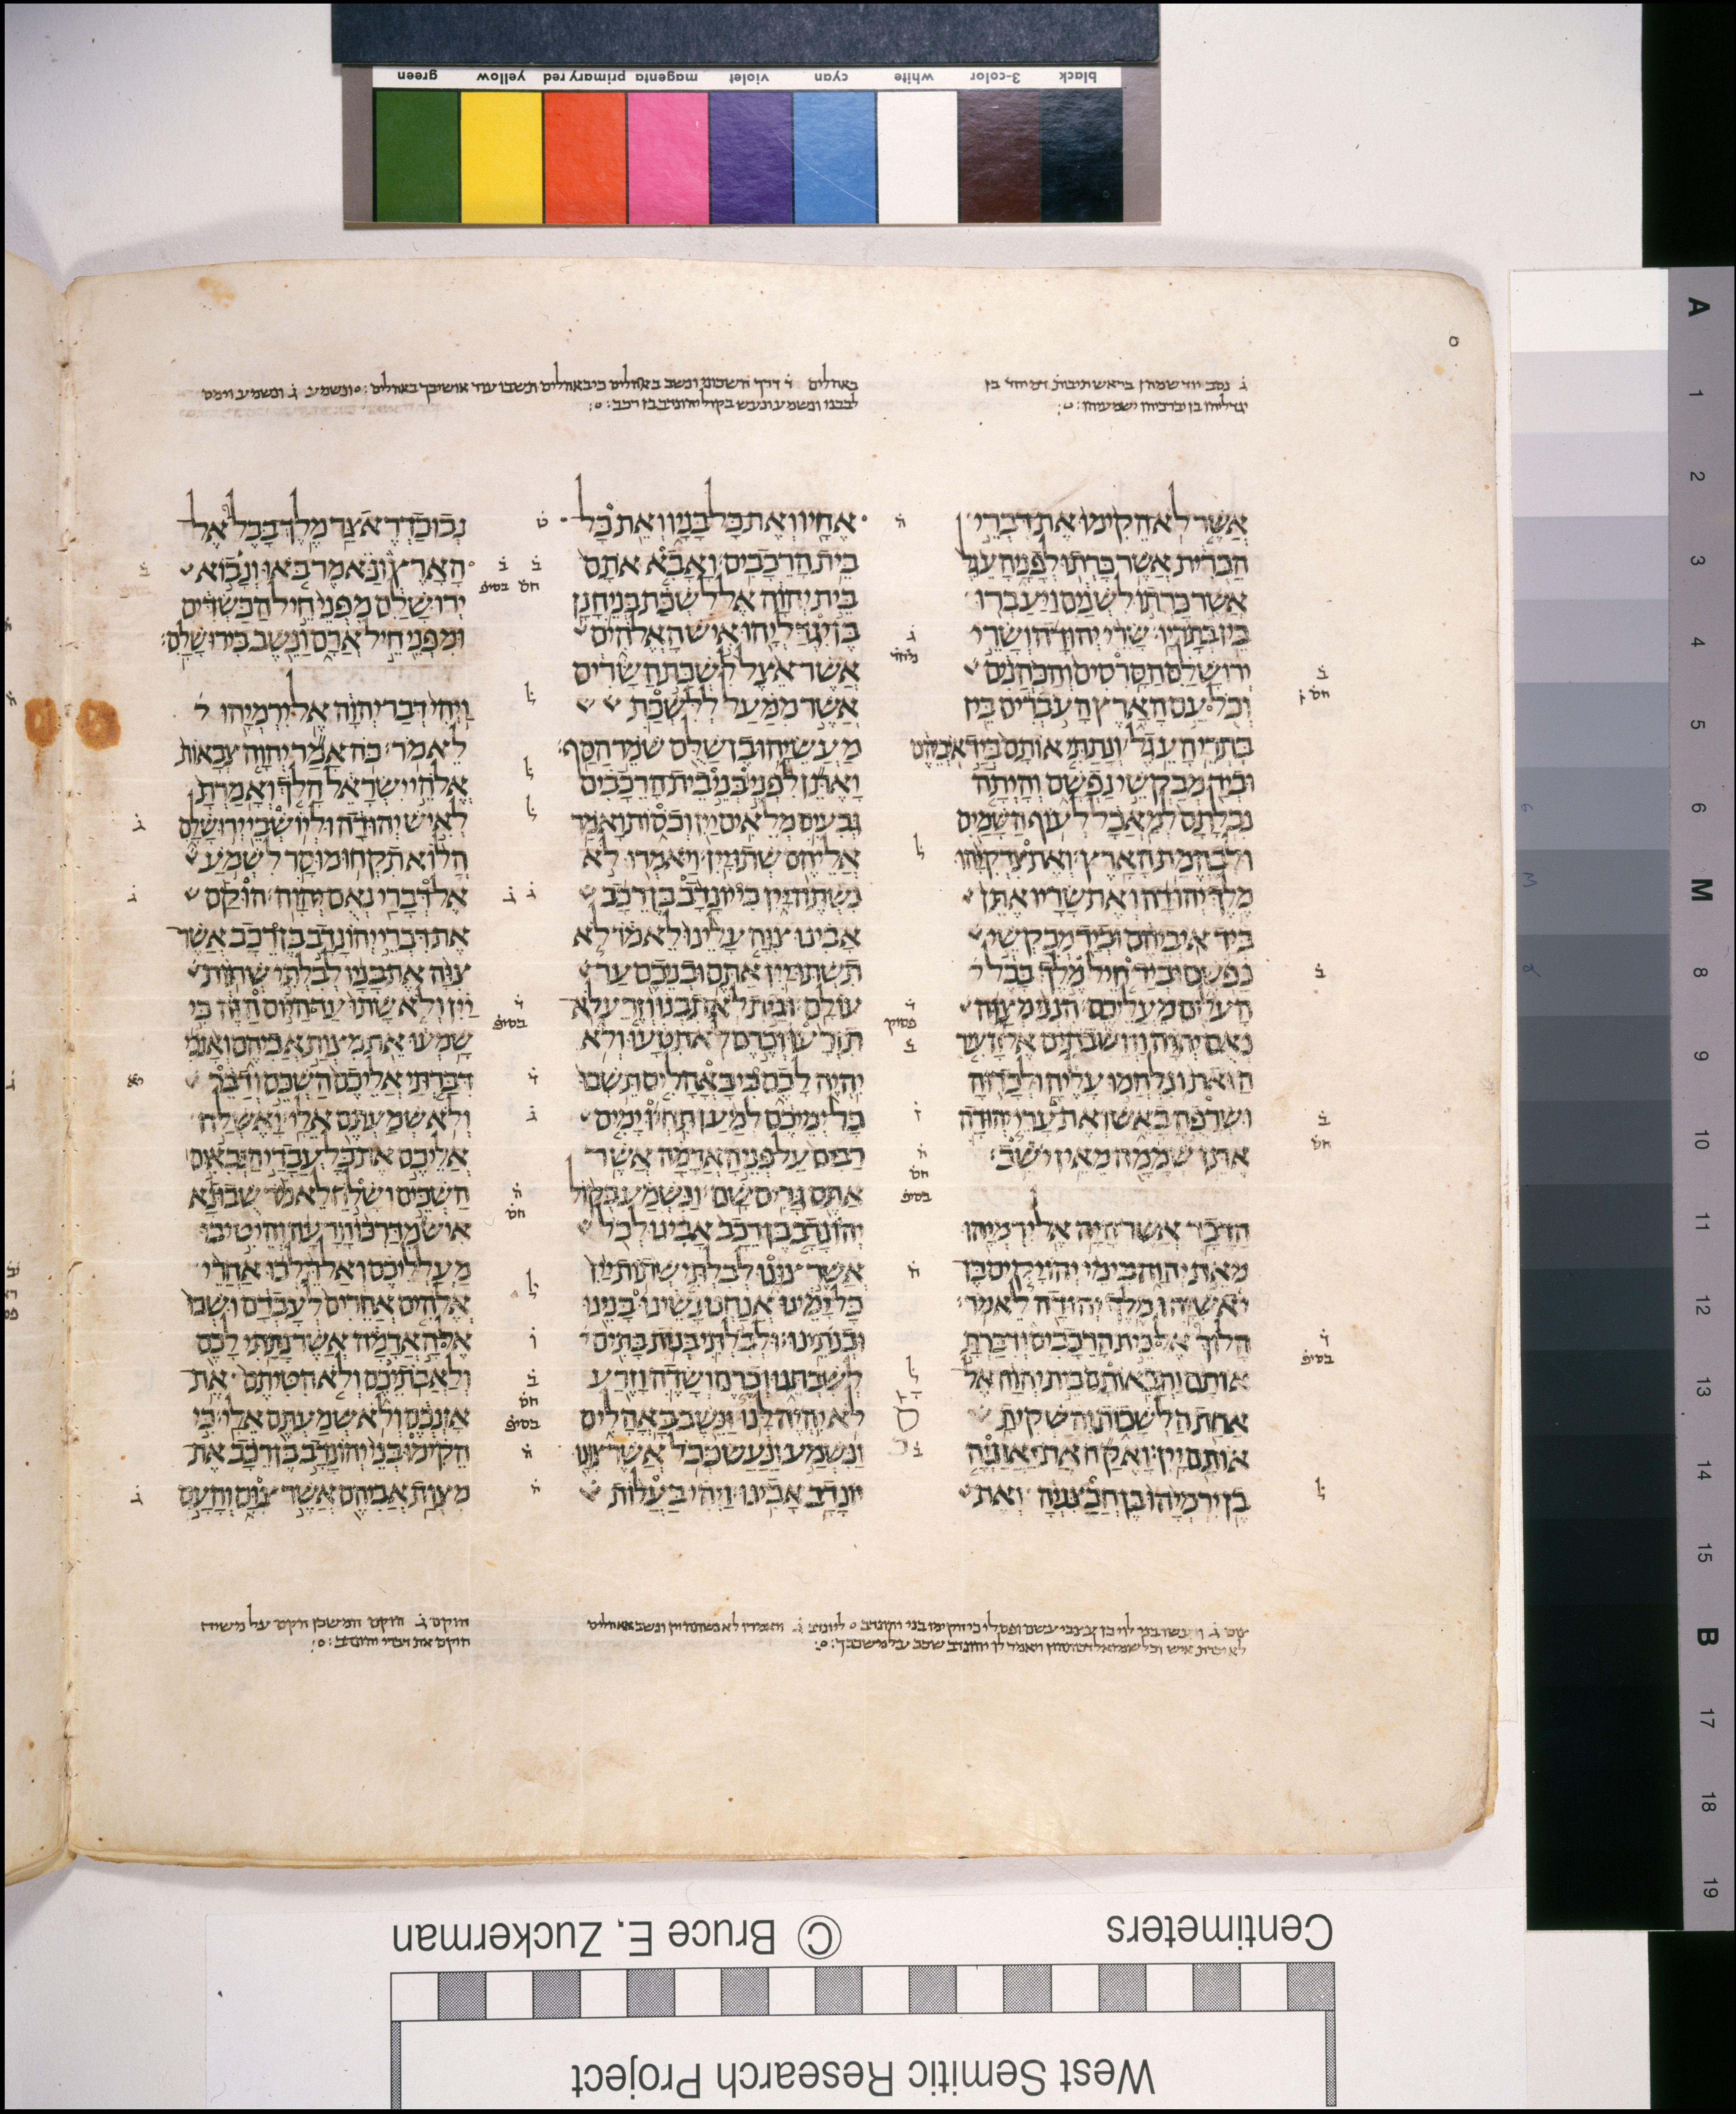 green yellow primary red magenta violet cyan white 3-color black
ג נסב יוד שמהן בראש תיבות דמיחד בן
יגדליהו בן יברכיהו ישמעיהו
באהלים ד דירך השכוני ונשב באהלים כי באהלים תשבו עוד אושיבך באהלים ונשמע ג ונשמע וימס
לבבנו ונשמע ונעש בקול יהונדב בן רכב
אשר לא הקימו את דברי
הברית אשר כרתו לפני העגל
אשר כרתו לשנים ויעברו
בין בתריו׃ שרי יהודה ושרי
ירושלם הסרסים והכהנים
וכל עם הארץ העברים בין
בתרי העגל׃ ונתתי אותם ביד איביהם
וביד מבקשי נפשם והיתה
נבלתם למאכל לעוף השמים
ולבהמת הארץ׃ ואת צדקיהו
מלך יהודה ואת שריו אתן
ביד איביהם וביד מבקשי
נפשם וביד חיל מלך בבל
העלים מעליכם׃ הנני מצוה
נאם יהוה והשבתים אל העיר
הזאת ונלחמו עליה ולכדוה
ושרפה באש ואת ערי יהודה
אתן שממה מאין ישב׃
הדבר אשר היה אל ירמיהו
מאת יהוה בימי יהויקים בן
יאשיהו מלך יהודה לאמר׃
הלוך אל בית הרכבים ודברת
אותם והבאותם בית יהוה אל
אחת הלשכות והשקית
אותם יין׃ ואקח את יאזניה
בן ירמיהו בן חבצניה ואת
אחיו ואת כל בניו ואת כל
בית הרכבים׃ ואבא אתם
בית יהוה אל לשכת בני חנן
בן יגדליהו איש האלהים
אשר אצל לשכת השרים
אשר ממעל ללשכת
מעשיהו בן שלם שמר הסף׃
ואתן לפני בני בית הרכבים
גבעים מלאים יין וכסות ואמר
אליהם שתו יין׃ ויאמרו לא
נשתה יין כי יונדב בן רכב
אבינו צוה עלינו לאמר לא
תשתו יין אתם ובניכם עד
עולם׃ ובית לא תבנו וזרע לא
תזרעו וכרם לא תטעו ולא
יהיה לכם כי באהלים תשבו
כל ימיכם למען תחיו ימים
רבים על פני האדמה אשר
אתם גרים שם׃ ונשמע בקול
יהונדב בן רכב אבינו לכל
אשר צונו לבלתי שתות יין
כל ימינו אנחנו נשינו בנינו
ובנתינו׃ ולבלתי בנות בתים
לשבתנו וכרם ושדה וזרע
לא יהיה לנו׃ ונשב באהלים
ונשמע ונעש ככל אשר צונו
יונדב אבינו׃ ויהי בעלות
נבוכדראצר מלך בבל אל
הארץ ונאמר באו ונבוא
ירושלם מפני חיל הכשדים
ומפני חיל ארם ונשב בירושלם׃
ויהי דבר יהוה אל ירמיהו
לאמר׃ כה אמר יהוה צבאות
אלהי ישראל הלך ואמרת
לאיש יהודה וליושבי ירושלם
הלוא תקחו מוסר לשמע
אל דברי נאם יהוה׃ הוקם
את דברי יהונדב בן רכב אשר
צוה את בניו לבלתי שתות
יין ולא שתו עד היום הזה כי
שמעו את מצות אביהם ואנכי
דברתי אליכם השכם ודבר
ולא שמעתם אלי׃ ואשלח
אליכם את כל עבדי הנבאים
השכים ושלח לאמר שבו נא
איש מדרכו הרעה והיטיבו
מעלליכם ואל תלכו אחרי
אלהים אחרים לעבדם ושבו
אל האדמה אשר נתתי לכם
ולאבתיכם ולא הטיתם את
אזנכם ולא שמעתם אלי׃ כי
הקימו בני יהונדב בן רכב את
מצות אביהם אשר צום והעם
הוקם ג הוקם המשכן הקם על משיח
הוקם את דברי יהונדב
© Bruce E. Zuckerman Centimeters
West Semitic Research Project
A 1 2 3 4 5 6 M 8 9 10 11 12 13 14 15 B 17 18 19